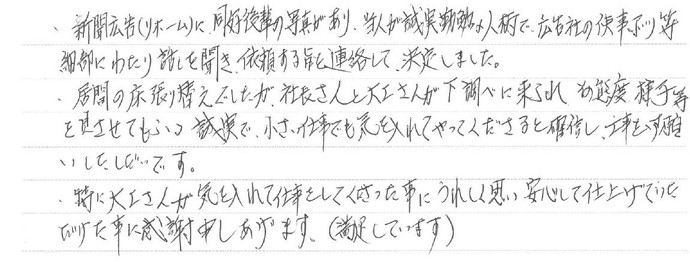 ・新聞広告(リホーム)に、同好後輩の写真があり、当人が誠実勤勉な人柄で、広告社の仕事ぶり等
細部にわたり話しを聞き、依頼する旨を連絡して、決定しました。
・居間の床張り替えでしたが、社長さんと大工さんが下調べに来られ 態度 様子等
を見させてもらい 誠実で、小さい仕事でも気を入れてやってくださると確信し、工事をお願
いしたしだいです。
・特に大工さんが気を入れて仕事をしてくださった事にうれしく思い 安心して仕上げていた
だけた事に感謝申しあげます。(満足しています)